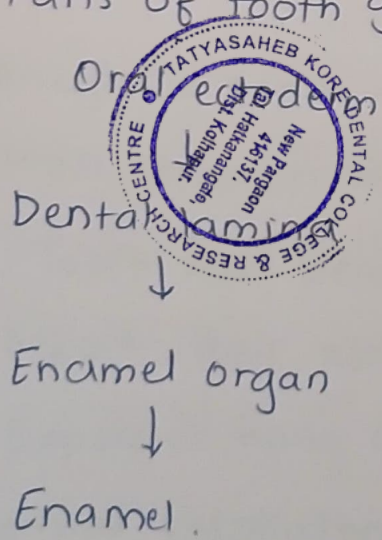 of Tooth
Oral ectoderm
↓
Dental lamina
↓
Enamel organ
↓
Enamel.
TATYASAHEB KORE DENTAL COLLEGE & RESEARCH CENTRE
New Pargaon
416137,
Tal. Hatkanangale,
Dist. Kolhapur